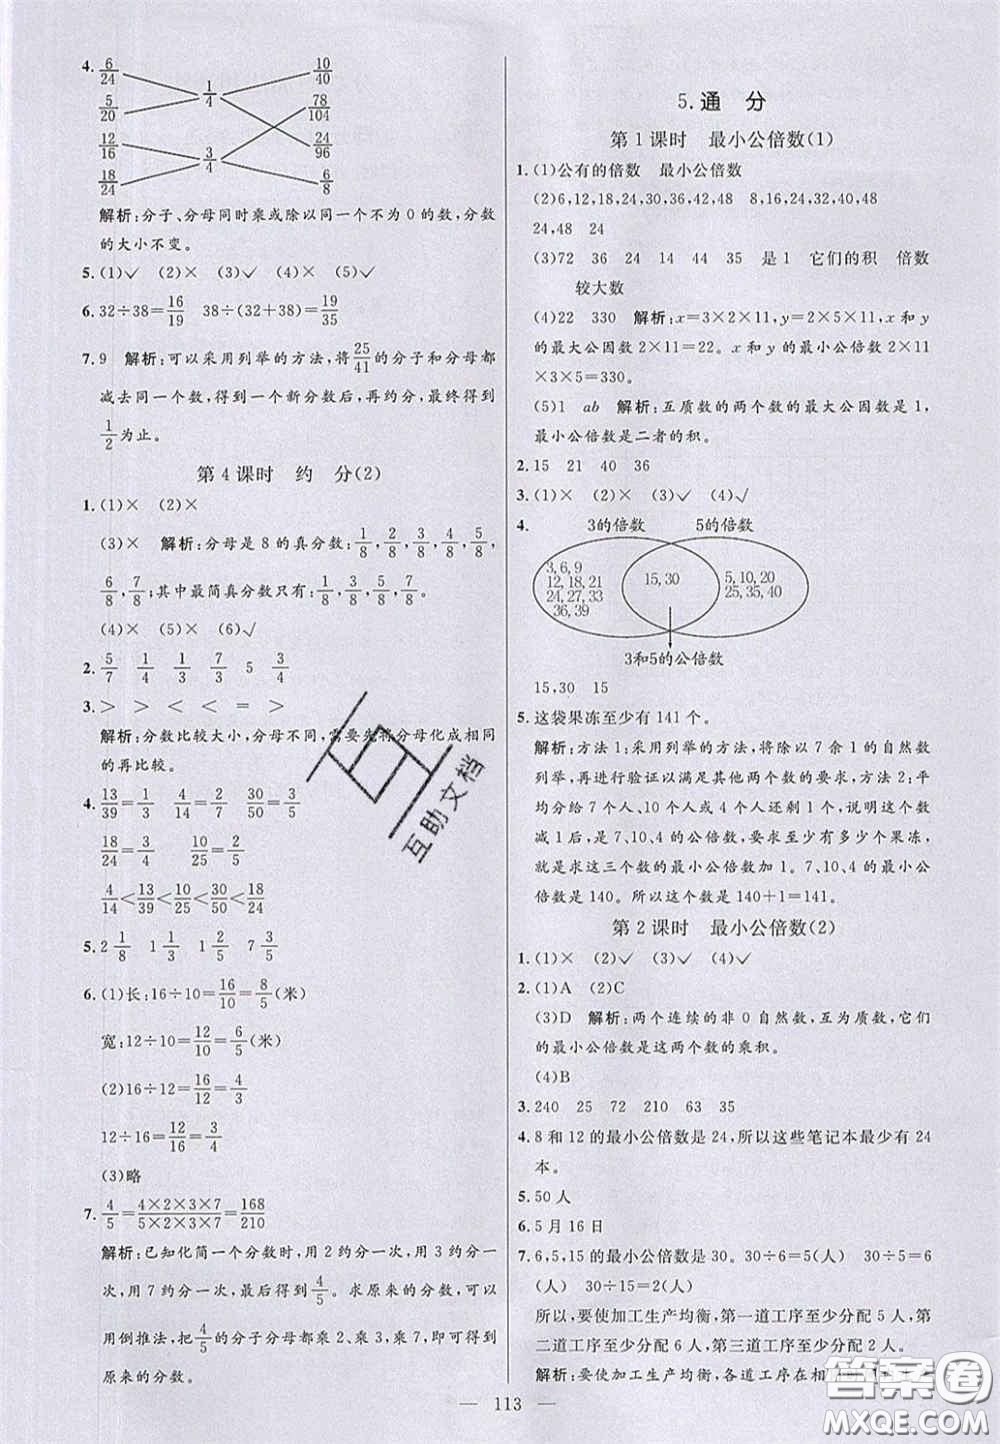 4. 6/24 1/4 10/40
5/20 78/104
12/16 3/4 24/96
18/24 6/8
解析:分子、分母同时乘或除以同一个不为0的数,分数
的大小不变。
5. (1)✓ (2)× (3)✓ (4)× (5)✓
6. 32÷38=16/19 38÷(32+38)=19/35
7. 9 解析:可以采用列举的方法,将25/41的分子和分母都
减去同一个数,得到一个新分数后,再约分,最终得到
1/2为止。
第4课时 约 分(2)
1. (1)× (2)×
(3)× 解析:分母是8的真分数:1/8,2/8,3/8,4/8,5/8,
6/8,7/8;其中最简真分数只有:1/8,3/8,5/8,7/8。
(4)× (5)× (6)✓
2. 5/7 1/4 1/3 7/3 5 3/4
3. > > < < = >
解析:分数比较大小,分母不同,需要先将分母化成相同
的再比较。
4. 13/39=1/3 4/14=2/7 30/50=3/5
18/24=3/4 10/25=2/5
4/14<13/39<10/25<30/50<18/24
5. 2 1/8 1 1/3 1 2/5 7 3/4
6. (1)长:16÷10=16/10=8/5(米)
宽:12÷10=12/10=6/5(米)
(2)16÷12=16/12=4/3
12÷16=12/16=3/4
(3)略
7. 4/5=4×2×3×7/5×2×3×7=168/210
解析:已知化简一个分数时,用2约分一次,用3约分一
次,用7约分一次,最后得到4/5。求原来的分数,可以
用倒推法,把4/5的分子分母都乘2、乘3、乘7,即可得到
原来的分数。
5.通 分
第1课时 最小公倍数(1)
1. (1)公有的倍数 最小公倍数
(2)6,12,18,24,30,36,42,48 8,16,24,32,40,48
24,48 24
(3)72 36 24 14 44 35 是1 它们的积 倍数
较大数
(4)22 330 解析:x=3×2×11,y=2×5×11,x和y
的最大公因数2×11=22。x和y的最小公倍数2×11
×3×5=330。
(5)1 ab 解析:互质数的两个数的最大公因数是1,
最小公倍数是二者的积。
2. 15 21 40 36
3. (1)× (2)× (3)✓ (4)✓
4. 3的倍数 5的倍数
3,6,9
12,18,21
24,27,33
36,39
15,30
5,10,20
25,35,40
3和5的公倍数
15,30 15
5. 这袋果冻至少有141个。
解析:方法1:采用列举的方法,将除以7余1的自然数
列举,再进行验证以满足其他两个数的要求,方法2:平
均分给7个人、10个人或4个人还剩1个,说明这个数
减1后,是7、10、4的公倍数,要求至少有多少个果冻,
就是求这三个数的最小公倍数加1。7、10、4的最小公
倍数是140。所以这个数是140+1=141。
第2课时 最小公倍数(2)
1. (1)× (2)✓ (3)✓ (4)✓
2. (1)A (2)C
(3)D 解析:两个连续的非0自然数,互为质数,它们
的最小公倍数是这两个数的乘积。
(4)B
3. 240 25 72 210 63 35
4. 8和12的最小公倍数是24,所以这些笔记本最少有24
本。
5. 50人
6. 5月16日
7. 6,5,15的最小公倍数是30。30÷6=5(人) 30÷5=6
(人) 30÷15=2(人)
所以,要使加工生产均衡,第一道工序至少分配5人,第
二道工序至少分配6人,第三道工序至少分配2人。
解析:要使加工生产均衡,各道工序在相
— 113 —
互助文档
答案圈
MXQE.COM